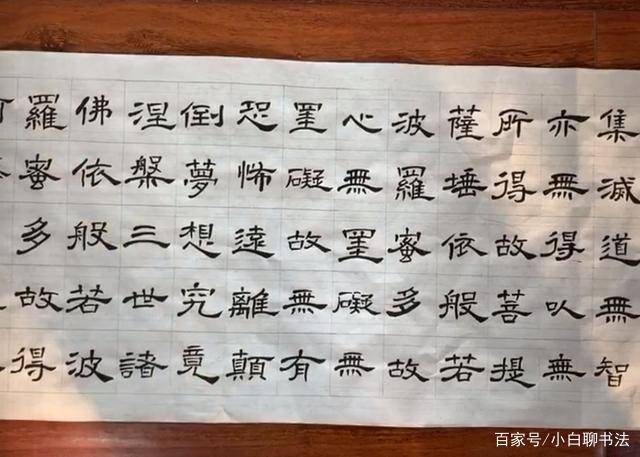 集滅道無智
亦無得以無
所得故菩提
薩埵依般若
波羅蜜多故
心無罣礙無
罣礙故無有
恐怖遠離顛
倒夢想究竟
涅槃三世諸
佛依般若波
羅蜜多故得
百家号/小白聊书法